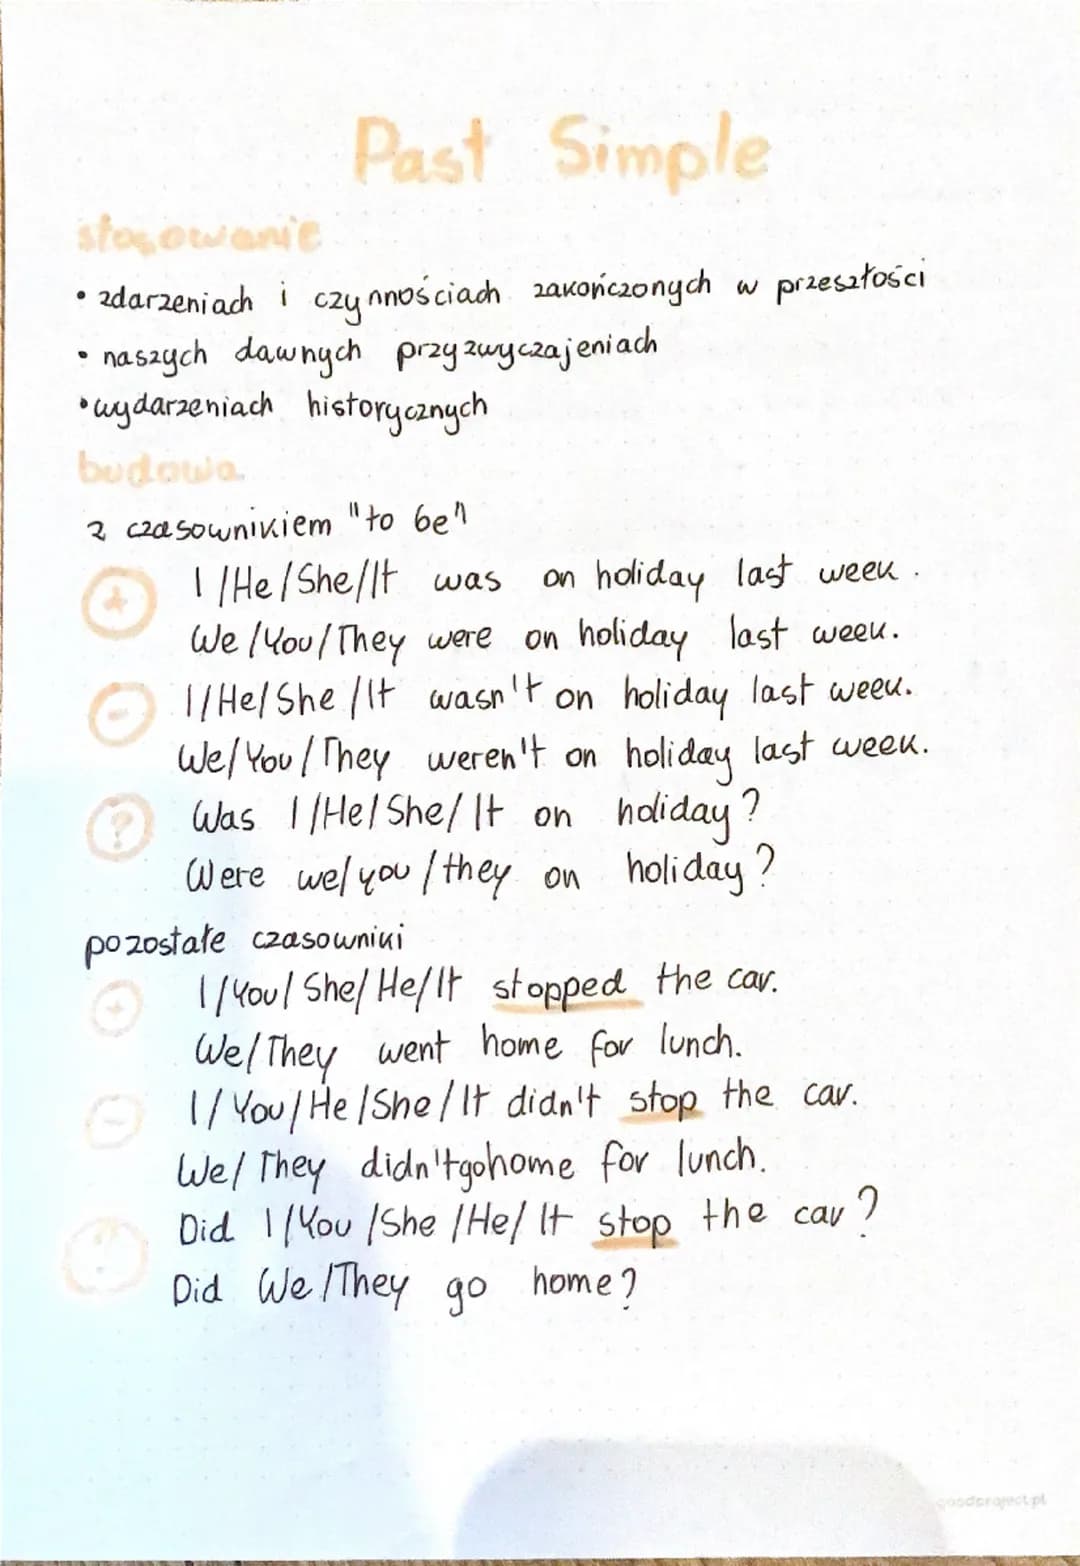 Past Simple
stosowanie
• zdarzeniach i czynnościach zakończonych w przeszłości
• naszych dawnych przyzwyczajeniach
• wydarzeniach historycznych
budowa
z czasownikiem "to be"
+ I/He/She/It was on holiday last week.
We/You/They were on holiday last week.
- I/He/She/It wasn't on holiday last week.
We/You/They weren't on holiday last week.
? Was I/He/She/It on holiday?
Were we/you/they on holiday?
pozostałe czasowniki
+ I/You/She/He/It stopped the car.
We/They went home for lunch.
- I/You/He/She/It didn't stop the car.
We/They didn't go home for lunch.
? Did I/You/She/He/It stop the car?
Did We/They go home?
goodproject.pl